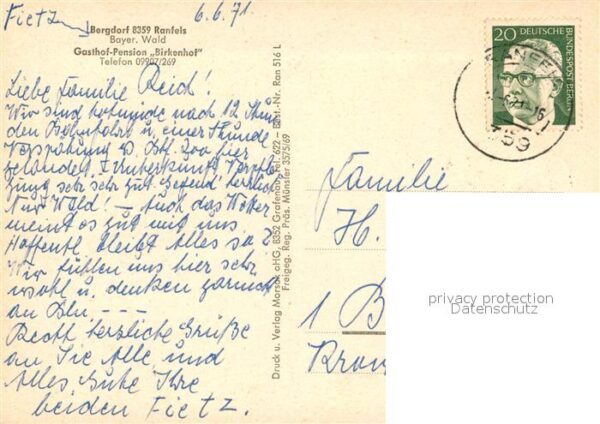 Fietz 6.6.71
Bergdorf 8359 Ranfels
Bayer. Wald
Gasthof-Pension „Birkenhof"
Telefon 09907/269
Liebe Familie Reid!
Wir sind nach 12 Stun
den Bahnfahrt u. einer Stunde
Verspätung hier
gelandet. Unterkunft Verpfle
gung sehr sehr gut. Gegend herrlich
Nur Wald! – Auch das Wetter
meint es gut mit uns
Hoffentl. bleibt Alles so
Wir fühlen uns hier sehr
wohl u. denken garnicht
an Bln. – – –
Recht herzliche Grüße
an Sie Alle und
Alles Gute Ihre
beiden Fietz.
Druck u. Verlag Morsak oHG, 8352 Grafenau, Tel. 622 – Best.-Nr. Ran 516 L
Freigeg. Reg. Präs. Münster 3575/69
20 DEUTSCHE BUNDESPOST BERLIN
Familie
H.
1 B
privacy protection
Datenschutz